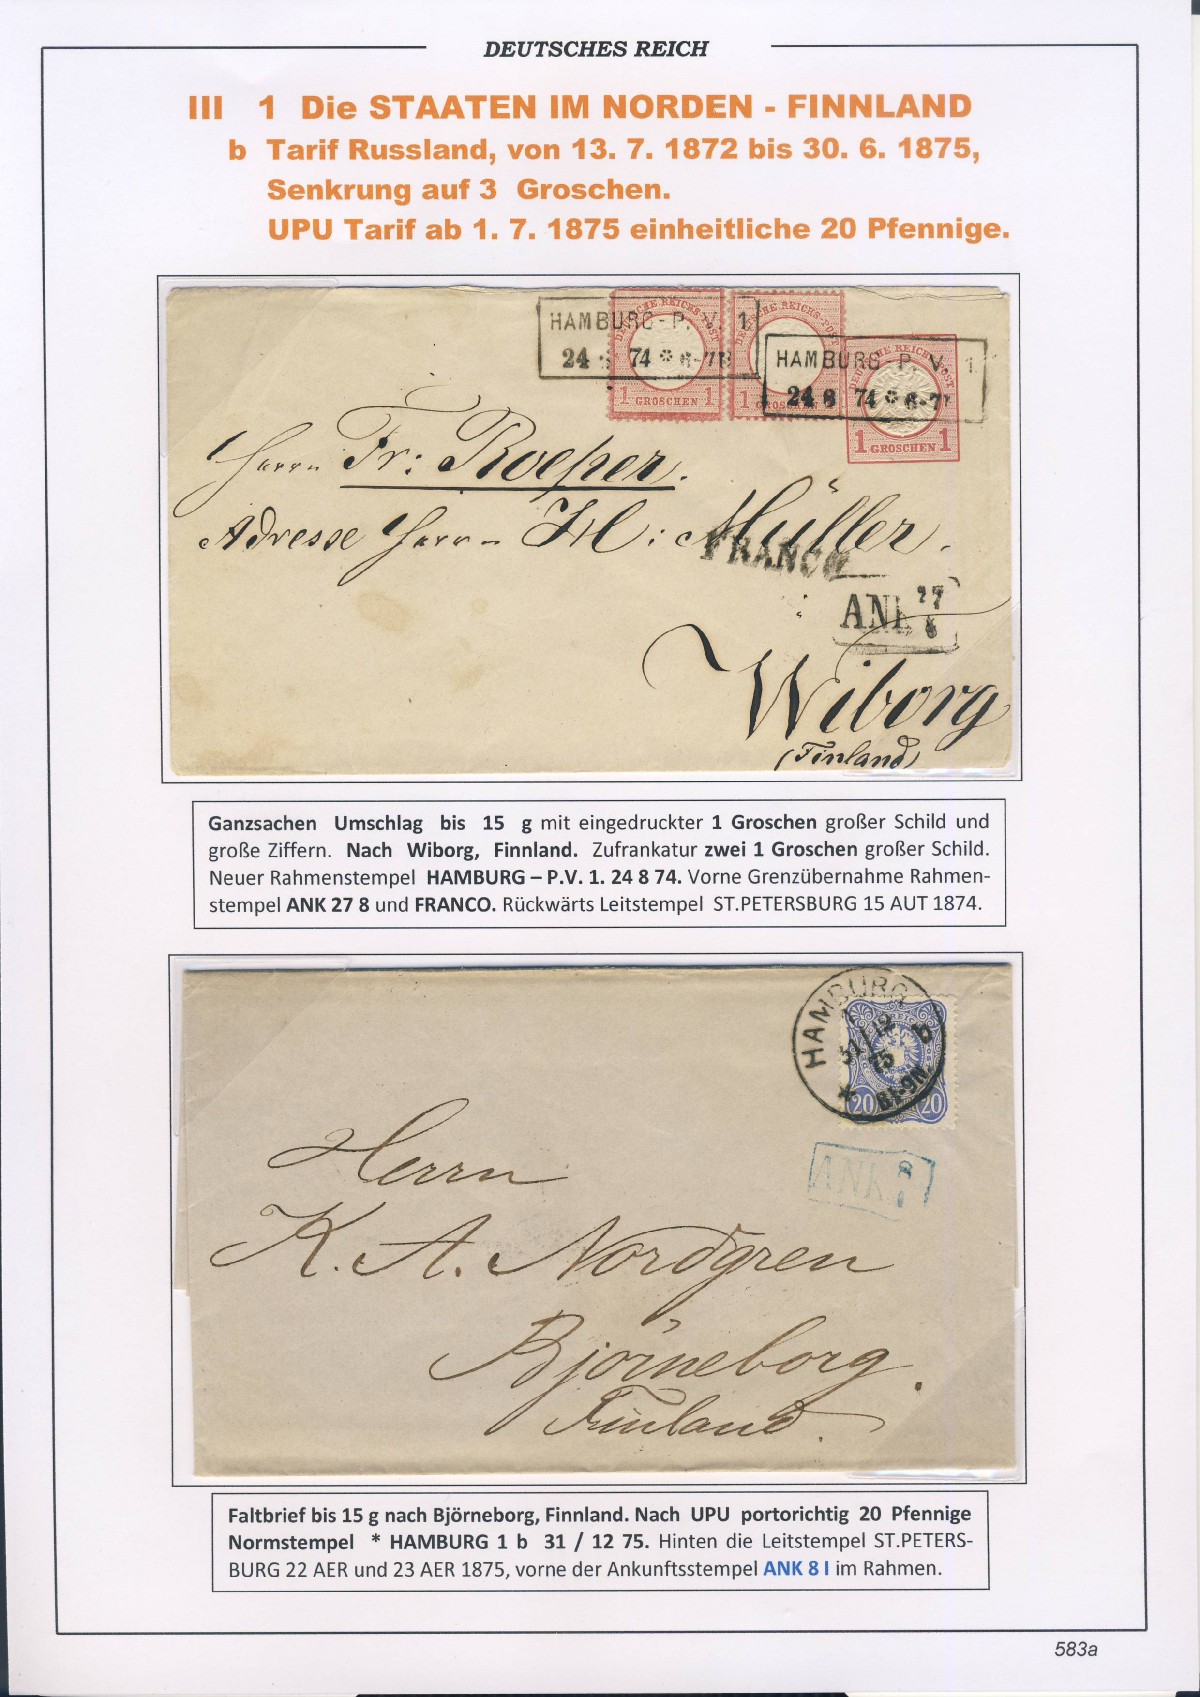 DEUTSCHES REICH
III 1 Die STAATEN IM NORDEN - FINNLAND
b Tarif Russland, von 13. 7. 1872 bis 30. 6. 1875,
Senkrung auf 3 Groschen.
UPU Tarif ab 1. 7. 1875 einheitliche 20 Pfennige.
HAMBURG - P. V. 1.
24 74 * 6-7
DEUTSCHE REICHS-POST
1 GROSCHEN 1
DEUTSCHE REICHS-POST
1 GROSCHEN
HAMBURG - P. V. 1.
24 8 74 * 6-7
DEUTSCHE REICHS POST
1 GROSCHEN 1
Herrn Fr: Roeper.
Adresse Herrn H: Müller.
FRANCO
ANK 27 8
Wiborg
(Finland)
Ganzsachen Umschlag bis 15 g mit eingedruckter 1 Groschen großer Schild und
große Ziffern. Nach Wiborg, Finnland. Zufrankatur zwei 1 Groschen großer Schild.
Neuer Rahmenstempel HAMBURG – P.V. 1. 24 8 74. Vorne Grenzübernahme Rahmen-
stempel ANK 27 8 und FRANCO. Rückwärts Leitstempel ST.PETERSBURG 15 AUT 1874.
HAMBURG
1 b
31/12
75
* 8-9N.
20 20
ANK. 8 I
Herrn
K. A. Nordgren
Björneborg.
Finland.
Faltbrief bis 15 g nach Björneborg, Finnland. Nach UPU portorichtig 20 Pfennige
Normstempel * HAMBURG 1 b 31 / 12 75. Hinten die Leitstempel ST.PETERS-
BURG 22 AER und 23 AER 1875, vorne der Ankunftsstempel ANK 8 I im Rahmen.
583a